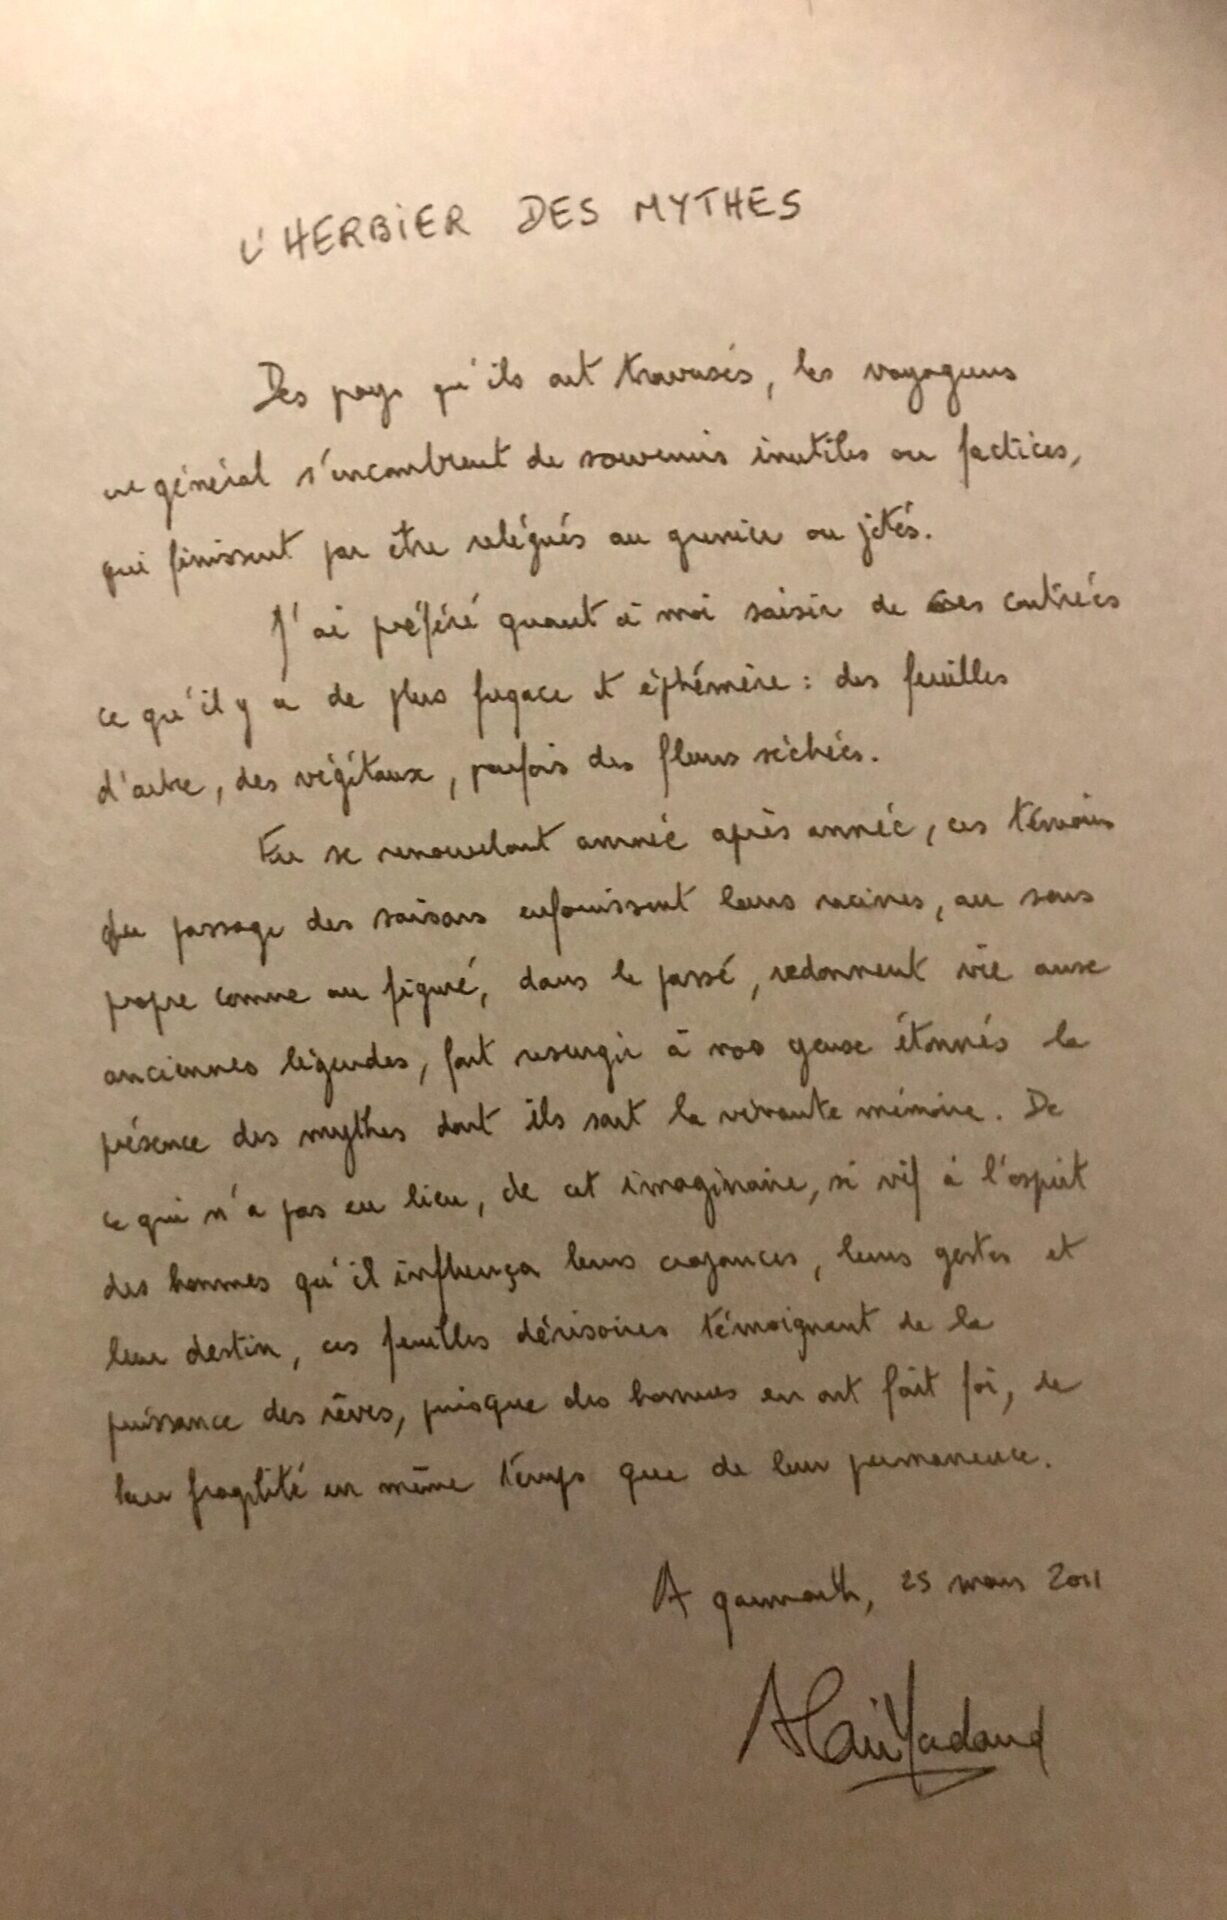 L'HERBIER DES MYTHES
Des pays qu'ils ont traversés, les voyageurs
en général s'encombrent de souvenirs inutiles ou factices,
qui finissent par être relégués au grenier ou jetés.
J'ai préféré quant à moi saisir de ces contrées
ce qu'il y a de plus fugace et éphémère : des feuilles
d'arbre, des végétaux, parfois des fleurs séchées.
En se renouvelant année après année, ces témoins
du passage des saisons enfouissent leurs racines, au sens
propre comme au figuré, dans le passé, redonnent vie aux
anciennes légendes, font resurgir à nos yeux étonnés la
présence des mythes dont ils sont la vivante mémoire. De
ce qui n'a pas eu lieu, de cet imaginaire, si vif à l'esprit
des hommes qu'il influença leurs croyances, leurs gestes et
leur destin, ces feuilles dérisoires témoignent de la
puissance des rêves, puisque des hommes en ont fait foi, de
leur fragilité en même temps que de leur permanence.
A gammarth, 25 mars 2011
Alain Nadaud